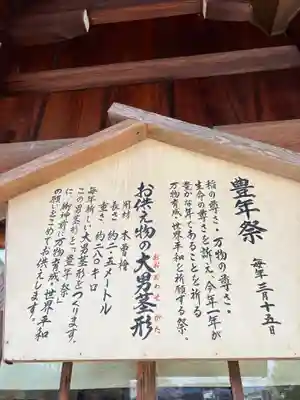 豊年祭
毎年 三月十五日
稲の尊さ・万物の尊さ・
生命の尊さを訴え、今年一年が
豊かな年であることを祈る
万物育成・世界平和を祈願する祭、
お供え物の大男茎形
おおおわせがた
用材 木曽檜
長さ 約二・五メートル
重さ 約二八〇キロ
毎年新しい大男茎形をつくります。
この男茎形を「豊年祭」
に御神前に万物育成・世界平和
の願いをこめてお供えします。